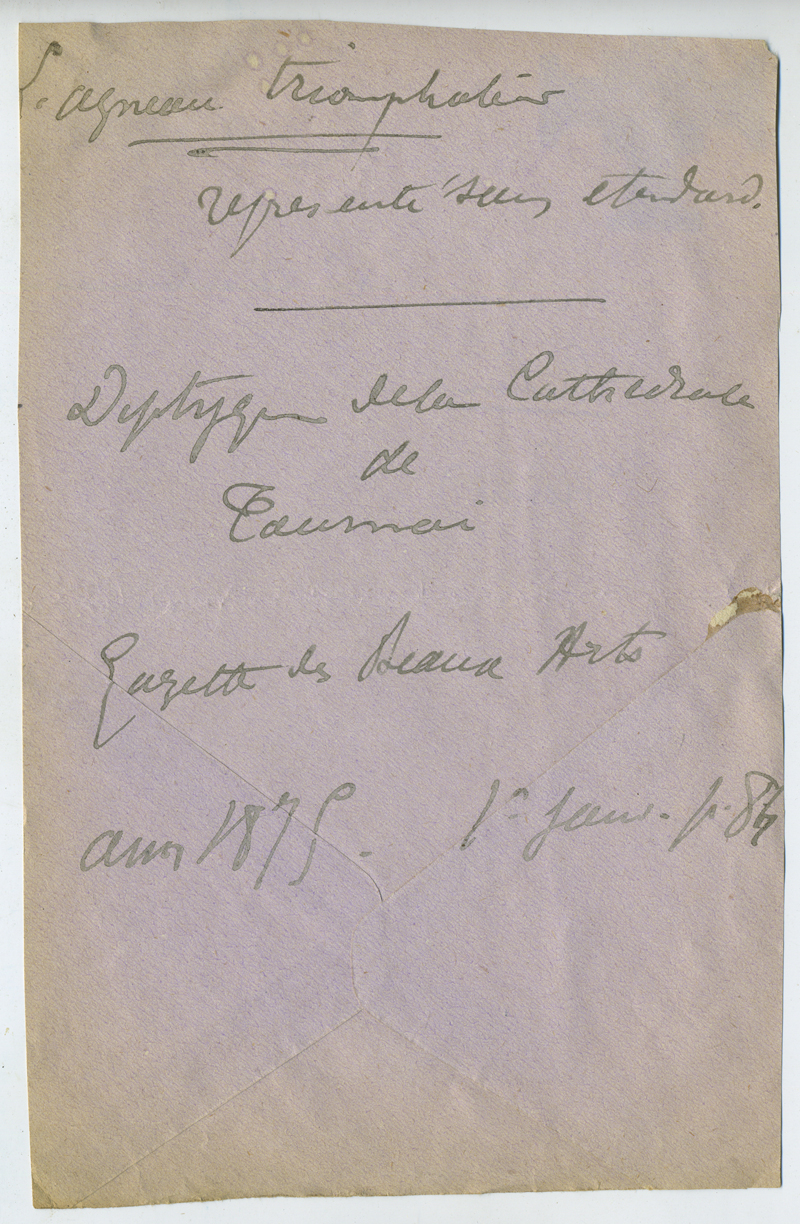 L'agneau triomphateur
représenté sans etendard.
Diptyque de la Cathedrale
de
Tournai
Gazette des Beaux Arts
ann 1875. 1er Janv. p.